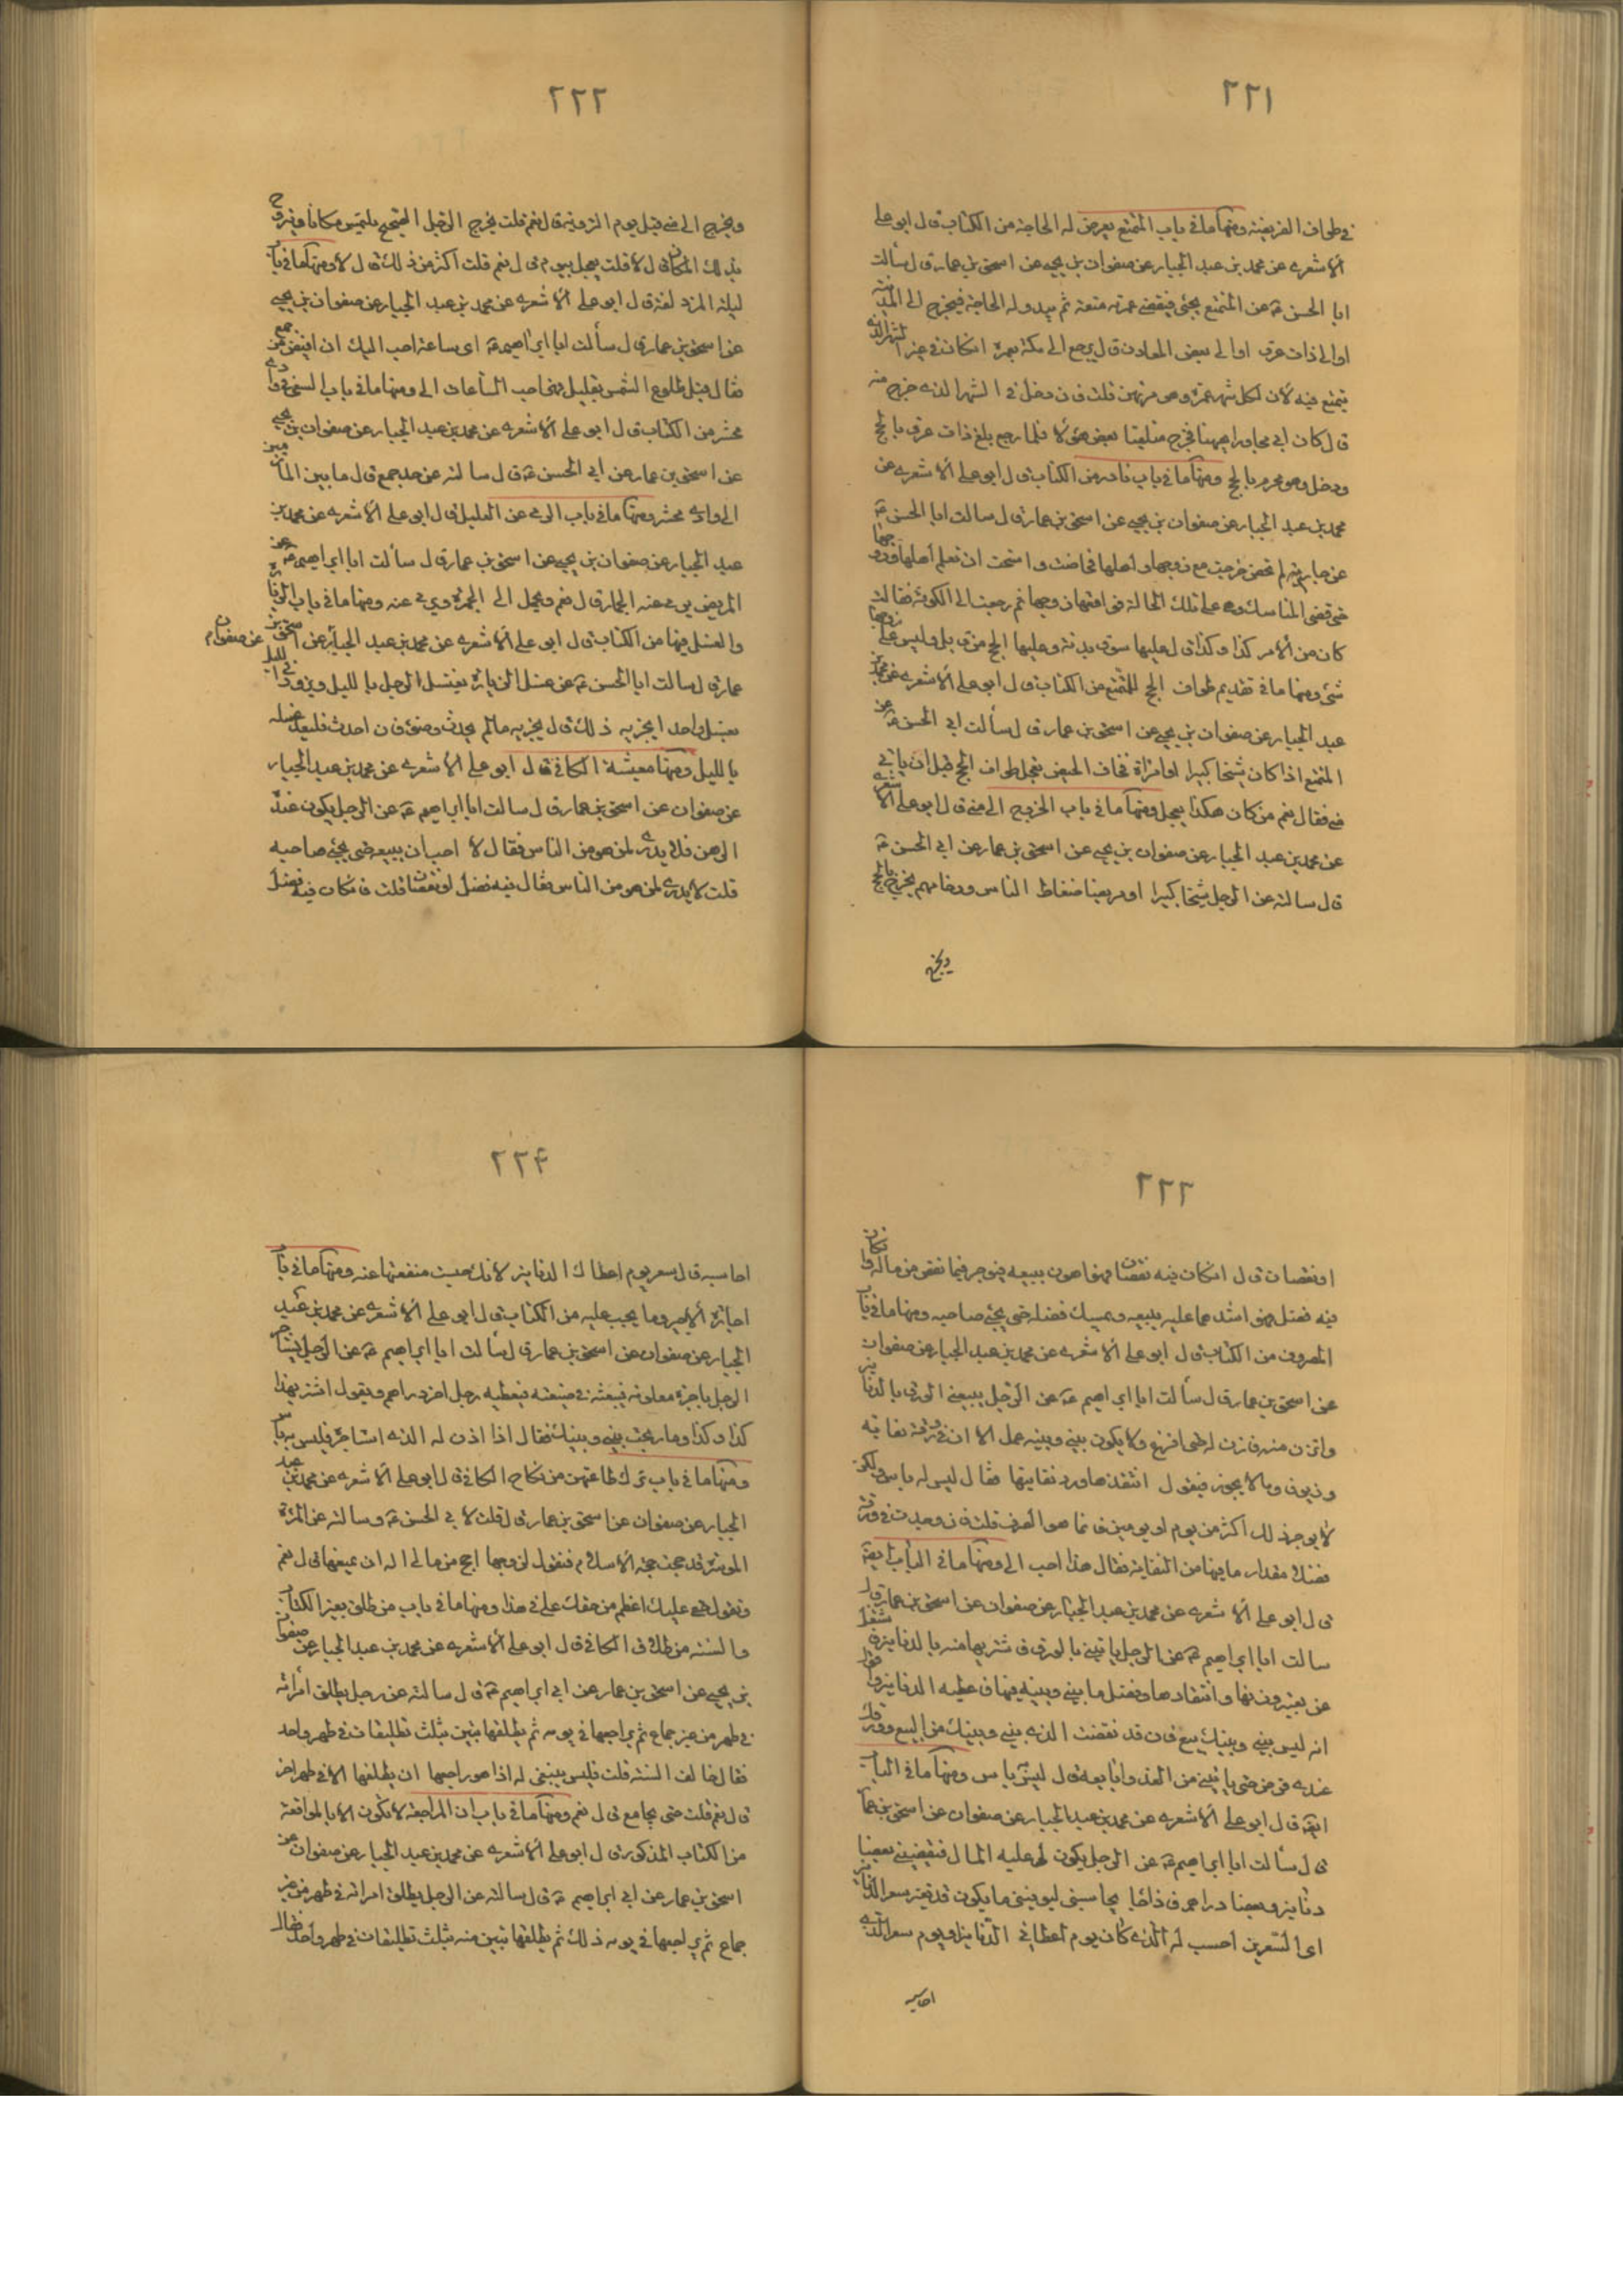 ٢٢١
في طواف الفريضة ومنها ما في باب المتمتع يعرض له الحاجة من الكتاب قال ابو علي
الاشعري عن محمد بن عبد الجبار عن صفوان بن يحيى عن اسحق بن عمار قال سألت
ابا الحسن ع عن المتمتع يجئ فيقضي عمرته متعة ثم يبدو له الحاجة فيخرج الى المدينة
او الى ذات عرق او الى بعض المعادن قال يرجع الى مكة بعمرة ان كان في غير الشهر الذي
يتمتع فيه لان لكل شهر عمرة وهو مرتهن قلت فان دخل في الشهر الذي خرج منه
قال كان ابي مجاورا هيهنا فخرج متلقيا بعض هؤلاء فلما رجع بلغ ذات عرق بالحج
ودخل وهو محرم بالحج ومنها ما في باب نادر من الكتاب قال ابو علي الاشعري عن
محمد بن عبد الجبار عن صفوان بن يحيى عن اسحق بن عمار قال سالت ابا الحسن ع
عن جارية لم تحض خرجت مع زوجها واهلها فحاضت واستحت ان تعلم اهلها وزوجها
حتى قضى المناسك وهي على تلك الحالة فواقعها زوجها ثم رجعت الى الكوفة فقالت
كان من الامر كذا وكذا قال عليها سوق بدنة وعليها الحج من قابل وليس على زوجها
شئ ومنها ما في تقديم طواف الحج للمتمتع من الكتاب قال ابو علي الاشعري عن محمد بن
عبد الجبار عن صفوان بن يحيى عن اسحق بن عمار قال سألت ابي الحسن ع عن
المتمتع اذا كان شيخا كبيرا او امراة تخاف الحيض يعجل طواف الحج قبل ان ياتي
منى فقال نعم من كان هكذا يعجل ومنها ما في باب الخروج الى منى قال ابو علي الاشعري
عن محمد بن عبد الجبار عن صفوان بن يحيى عن اسحق بن عمار عن ابي الحسن ع
قال سالته عن الرجل شيخا كبيرا او مريضا ضغاط الناس وزحامهم يخرج بالحج
ويخرج
٢٢٢
ويخرج الى منى قبل يوم التروية قال نعم قلت يخرج الرجل الصحيح يلتمس مكانا ويتروح
بذلك المكان قال لا قلت يعجل بيوم قال نعم قلت اكثر من ذلك قال لا ومنها ما في باب
ليلة المزدلفة قال ابو علي الاشعري عن محمد بن عبد الجبار عن صفوان بن يحيى
عن اسحق بن عمار قال سألت ابا ابراهيم ع اي ساعة احب اليك ان افيض من جمع
فقال قبل طلوع الشمس بقليل فهي احب الساعات الى ومنها ما في باب السعي في وادي
محسر من الكتاب قال ابو علي الاشعري عن محمد بن عبد الجبار عن صفوان بن يحيى
عن اسحق بن عمار عن ابي الحسن ع قال سالته عن حد جمع قال ما بين المأزمين
الى وادي محسر ومنها ما في باب الرمي عن العليل قال ابو علي الاشعري عن محمد بن
عبد الجبار عن صفوان بن يحيى عن اسحق بن عمار قال سألت ابا ابراهيم ع عن
المريض يرمى عنه الجمار قال نعم ويحمل الى الجمرة ويرمى عنه ومنها ما في باب الزيارة
والغسل فيها من الكتاب قال ابو علي الاشعري عن محمد بن عبد الجبار عن صفوان عن اسحق بن
عمار قال سالت ابا الحسن ع عن غسل الزيارة يغتسل الرجل بالليل ويزور في الليل
بغسل واحد ايجزيه ذلك قال يجزيه ما لم يحدث وضوء فان احدث فليعد غسله
بالليل ومنها معيشة الكافي قال ابو علي الاشعري عن محمد بن عبد الجبار
عن صفوان عن اسحق بن عمار قال سالت ابا ابراهيم ع عن الرجل يكون عنده
الرهن فلا يدري لمن هو من الناس فقال لا احب ان يبيعه حتى يجئ صاحبه
قلت لا يدري لمن هو من الناس فقال فيه فضل او نقصان قلت فان كان فيه فضل
٢٢٣
او نقصان قال ان كان فيه نقصان فهو اهون يبيعه فيوجر فيما نقص من ماله وان كان
فيه فضل فهو اشدهما عليه يبيعه ويمسك فضله حتى يجئ صاحبه ومنها ما في باب
الصروف من الكتاب قال ابو علي الاشعري عن محمد بن عبد الجبار عن صفوان
عن اسحق بن عمار قال سألت ابا ابراهيم ع عن الرجل يبيعني الورق بالدنانير
واتزن منه فازن له حتى افرغ ولا يكون بيني وبينه عمل الا ان في ورقه نفاية
وزيوف وما لا يجوز فيقول انتقدها ورد نفايتها فقال ليس له باس ولكن
لا يوخر ذلك اكثر من يوم او يومين فانما هو الصرف قلت فان وجدت في ورقه
فضلا مقدار ما فيها من النفاية فقال هذا احب الى ومنها ما في الباب ايضا
قال ابو علي الاشعري عن محمد بن عبد الجبار عن صفوان عن اسحق بن عمار قال
سالت ابا ابراهيم ع عن الرجل ياتيني بالورق فاشتريها منه بالدنانير فاشتغل
عن تعيير وزنها وانتقادها وفضل ما بيني وبينه فيها فاعطيه الدنانير واقول
انه ليس بيني وبينك بيع فان قد نقضت الذي بيني وبينك من البيع وورقك
عندي قرض حتى ياتيني من الغد وابايعه قال ليس به باس ومنها ما في الباب
ايضا قال ابو علي الاشعري عن محمد بن عبد الجبار عن صفوان عن اسحق بن عمار
قال سألت ابا ابراهيم ع عن الرجل يكون لي عليه المال فيقضيني بعضا
دنانير وبعضا دراهم فاذا جاء يحاسبني ليوفيني ما يكون قد تغير سعر الدنانير
اي السعرين احسب له الذي كان يوم اعطاني الدنانير او يوم سعر الذي
احاسبه
٢٢۴
احاسبه قال سعر يوم اعطاك الدنانير لانك حبست منفعتها عنه ومنها ما في باب
اجارة الاجير وما يجب عليه من الكتاب قال ابو علي الاشعري عن محمد بن عبد
الجبار عن صفوان عن اسحق بن عمار قال سألت ابا ابراهيم ع عن الرجل يستاجر
الرجل باجرة معلومة فيبعثه في ضيعته فيعطيه رجل اخر دراهم ويقول اشتر بهذا
كذا وكذا وما ربحت بيني وبينك فقال اذا اذن له الذي استاجره فليس به باس
ومنها ما في باب ترك طاعتهن من نكاح الكافي قال ابو علي الاشعري عن محمد بن عبد
الجبار عن صفوان عن اسحق بن عمار قال قلت لابي الحسن ع وسالته عن المرأة
الموسرة قد حجت حجة الاسلام فتقول لزوجها احج من مالي اله ان يمنعها قال نعم
ويقول حقي عليك اعظم من حقك علي في هذا ومنها ما في باب من طلق بغير الكتاب
والسنة من طلاق الكافي قال ابو علي الاشعري عن محمد بن عبد الجبار عن صفوان
بن يحيى عن اسحق بن عمار عن ابي ابراهيم ع قال سالته عن رجل يطلق امرأته
في طهر من غير جماع ثم يراجعها في يومه ثم يطلقها تبين بثلث تطليقات في طهر واحد
فقال خالف السنة قلت فليس ينبغي له اذا هو راجعها ان يطلقها الا في طهر اخر
قال نعم قلت حتى يجامع قال نعم ومنها ما في باب ان المراجعة لا تكون الا بالمواقعة
من الكتاب المذكور قال ابو علي الاشعري عن محمد بن عبد الجبار عن صفوان عن
اسحق بن عمار عن ابي ابراهيم ع قال سالته عن الرجل يطلق امراته في طهر من غير
جماع ثم يراجعها في يومه ذلك ثم يطلقها تبين منه بثلث تطليقات في طهر واحد فقال